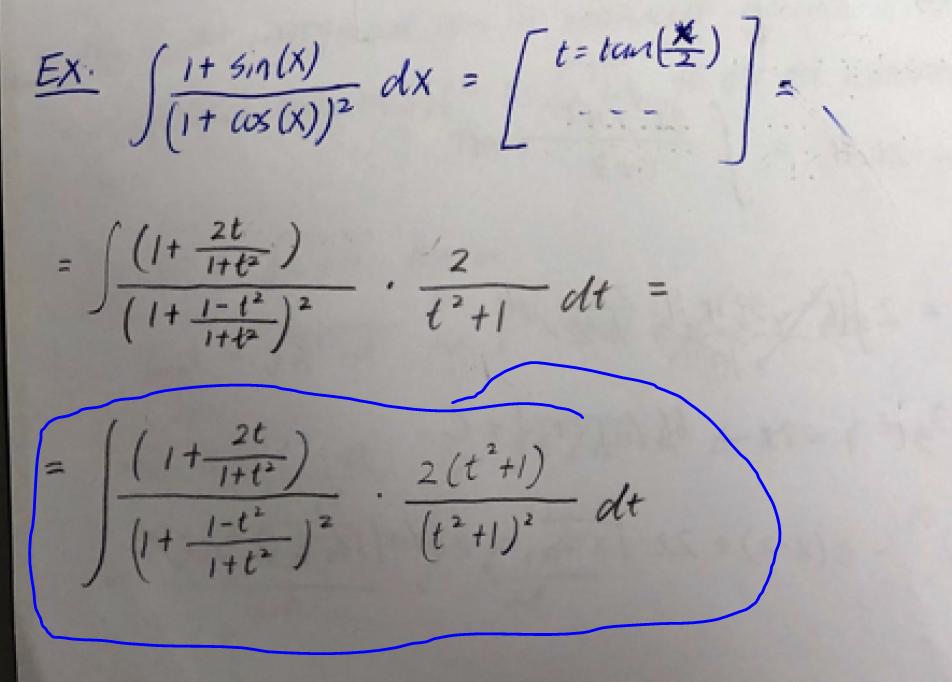 Ex. ∫ (1 + sin(x)) / (1 + cos(x))² dx = [ t = tan(x/2) ..... ] =
= ∫ (1 + 2t/(1+t²)) / (1 + (1-t²)/(1+t²))² · 2/(t²+1) dt =
= ∫ (1 + 2t/(1+t²)) / (1 + (1-t²)/(1+t²))² · 2(t²+1)/(t²+1)² dt